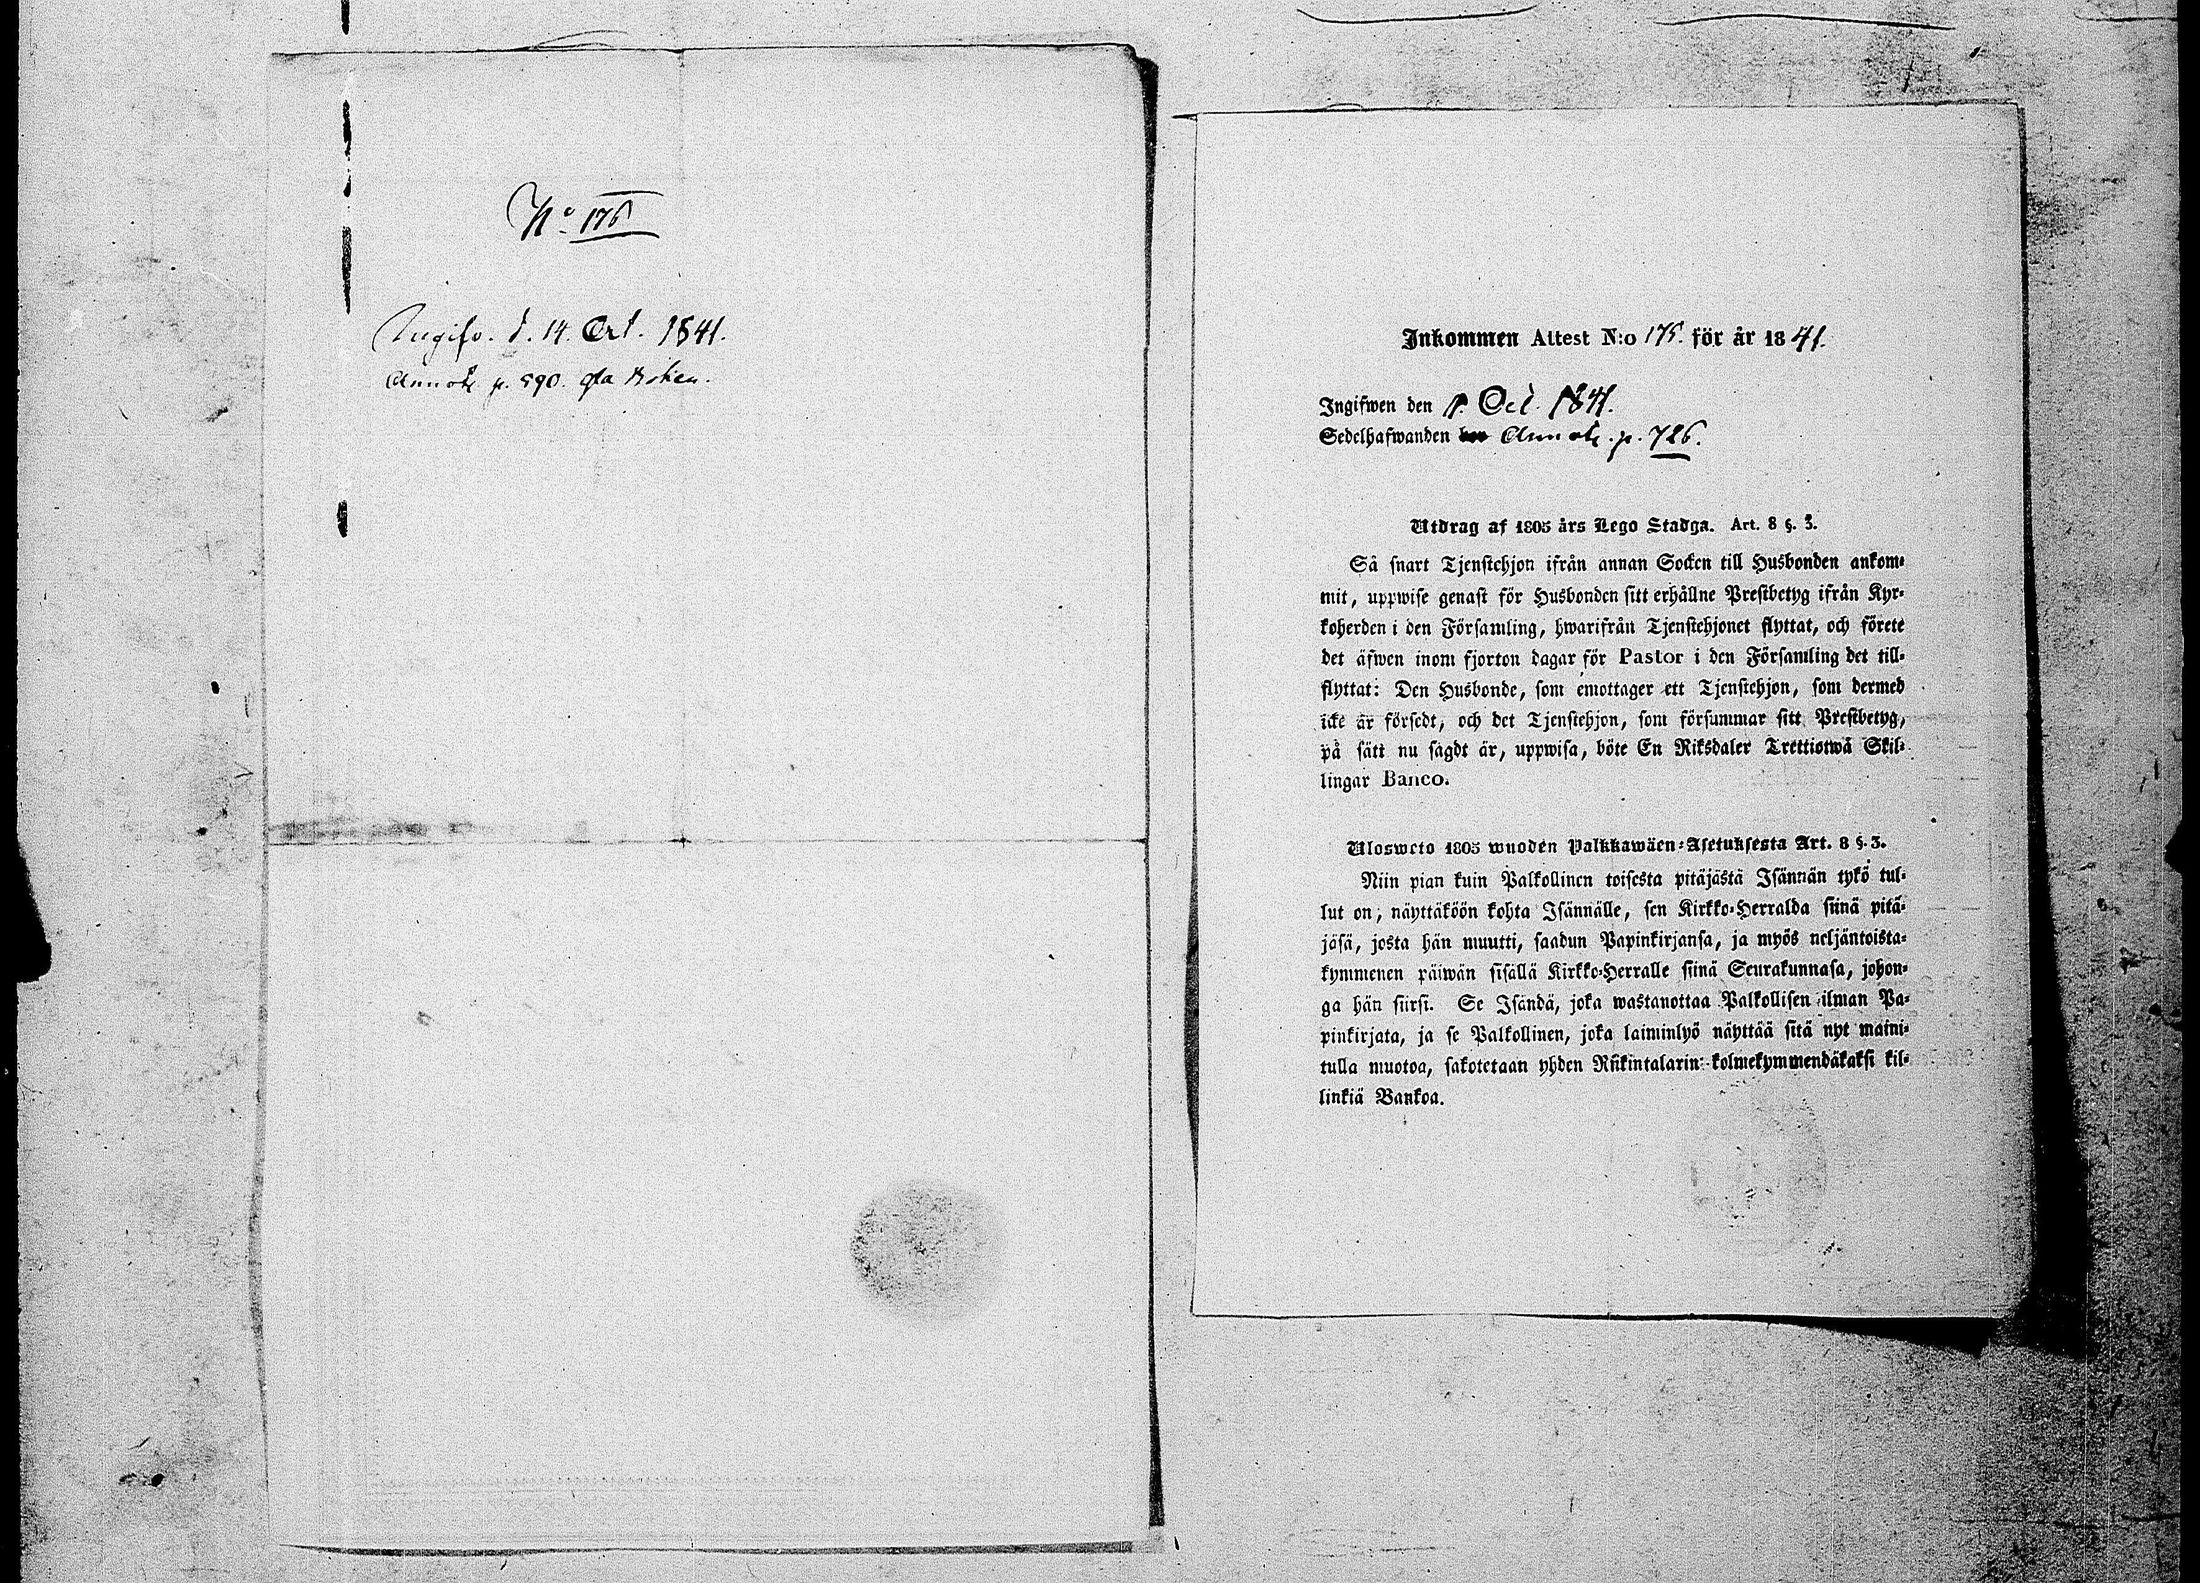 No 176
Ingifv. d. 14. Oct. 1841.
Annot. p. 590. gla Boken.
Inkommen Attest N:o 175. för år 1841.
Ingifwen den Oct. 1841.
Sedelhafwanden Annot. p. 726.
Utdrag af 1805 års Lego Stadga. Art. 8 §. 3.
Så snart Tjenstehjon ifrån annan Socken till Husbonden ankom-
mit, uppwise genast för Husbonden sitt erhållne Prestbetyg ifrån Kyr-
koherden i den Församling, hwarifrån Tjenstehjonet flyttat, och förete
det äfwen inom fjorton dagar för Pastor i den Församling det till-
flyttat: Den Husbonde, som emottager ett Tjenstehjon, som dermed
icke är försedt, och det Tjenstehjon, som försummar sitt Prestbetyg,
på sätt nu sagdt är, uppwisa, böte En Riksdaler Trettiotwå Skil-
lingar Banco.
Ulosweto 1805 wuoden Palkkawäen-Asetuksesta Art. 8 §. 3.
Niin pian kuin Palkollinen toisesta pitäjästä Isännän tykö tul-
lut on, näyttäköön kohta Isännälle, sen Kirkko-Herralda siinä pitä-
jäsä, josta hän muutti, saadun Papinkirjansa, ja myös neljäntoista-
kymmenen päiwän sisällä Kirkko-Herralle siinä Seurakunnasa, johon-
ga hän siirsi. Se Isändä, joka wastanottaa Palkollisen ilman Pa-
pinkirjata, ja se Palkollinen, joka laiminlyö näyttää sitä nyt maini-
tulla muotoa, sakotetaan yhden Riikintalarin kolmekymmendäkaksi kil-
linkiä Bankoa.